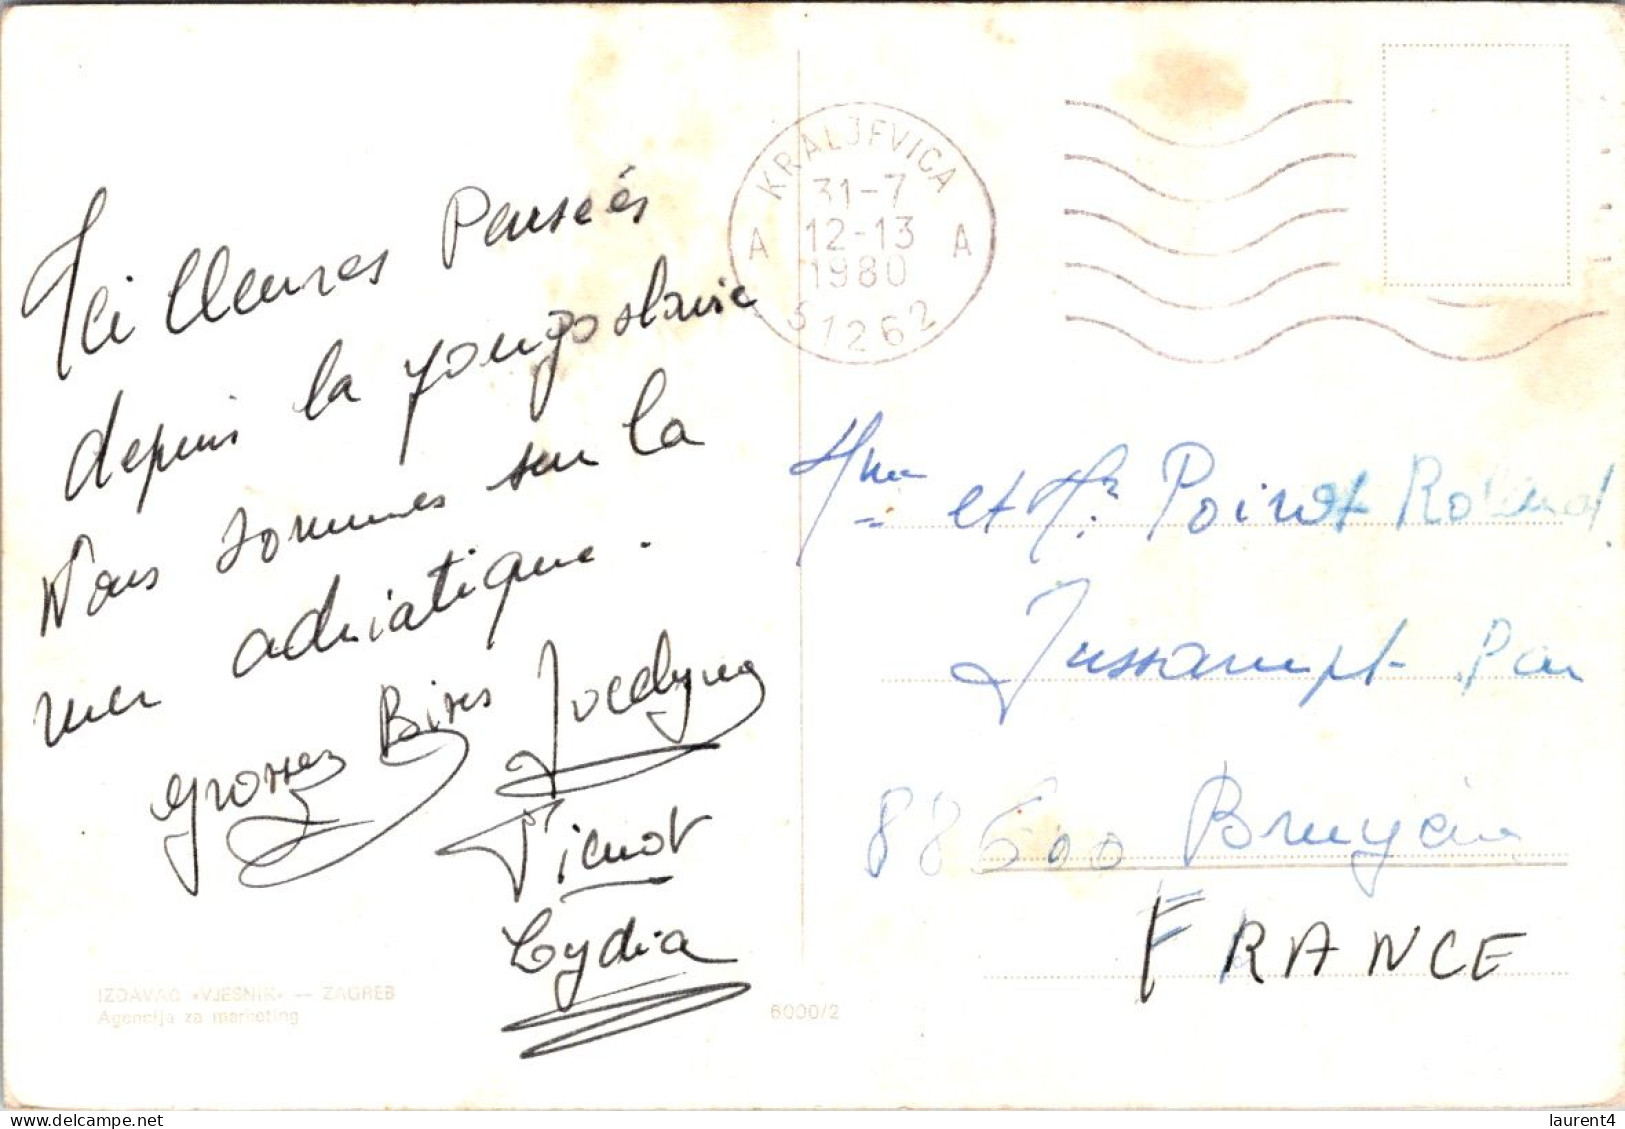 Meilleures Pensées
depuis la yougoslavie
Nous sommes sur la
mer adriatique.
Grosses Bises Jocelyne
Lydia
IZDAVAČ «VJESNIK» — ZAGREB
Agencija za marketing
6000/2
KRALJEVICA
31-7
A 12-13 A
1980
51262
Mme et Mr. Poirot Roland.
Jussarupt Par
88600 Bruyères
FRANCE
laurent4